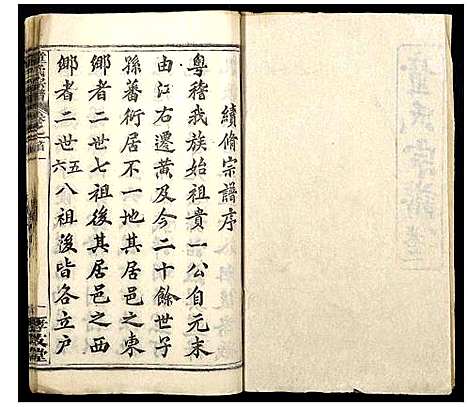 續脩宗譜序
粵稽我族始祖貴一公自元末
由江右遷黃及今二十餘世子
孫蕃衍居不一地其居邑之東
鄉者二世七祖後其居邑之西
鄉者二世五六八祖後皆各立戶
童氏宗譜